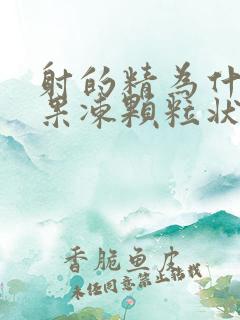 射的精為什
果凍顆粒狀
香脆鱼皮
未任同意禁止轉載